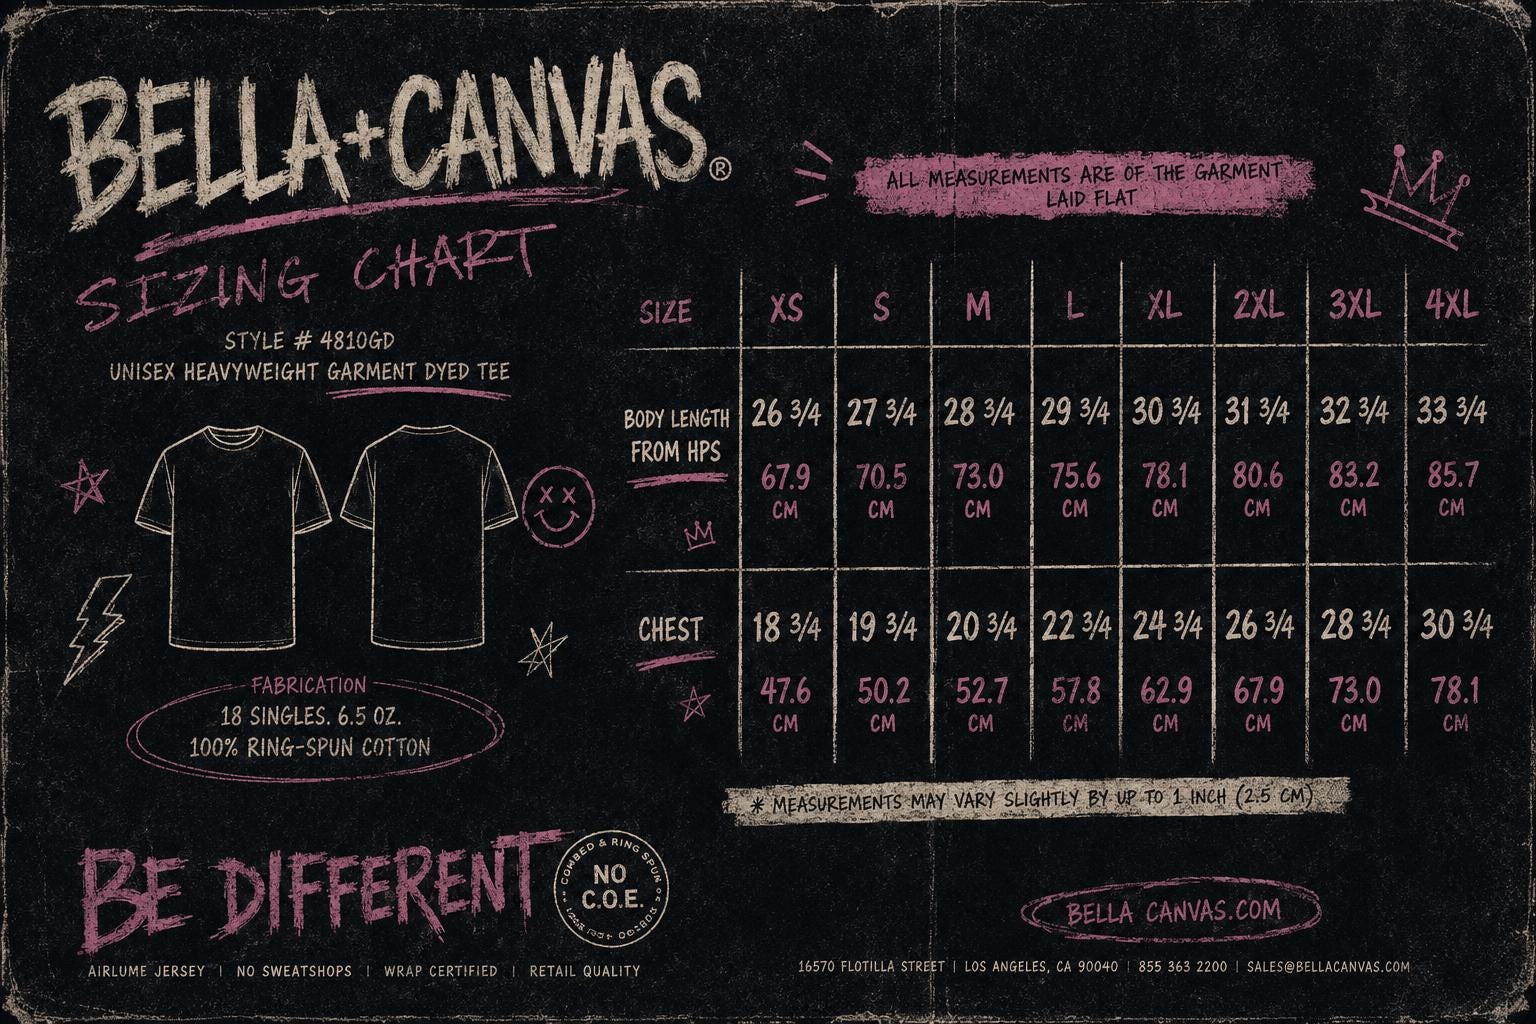 BELLA+CANVAS®
SIZING CHART
STYLE # 4810GD
UNISEX HEAVYWEIGHT GARMENT DYED TEE
FABRICATION
18 SINGLES. 6.5 OZ.
100% RING-SPUN COTTON
ALL MEASUREMENTS ARE OF THE GARMENT
LAID FLAT
SIZE XS S M L XL 2XL 3XL 4XL
BODY LENGTH
FROM HPS
26 3/4 27 3/4 28 3/4 29 3/4 30 3/4 31 3/4 32 3/4 33 3/4
67.9 70.5 73.0 75.6 78.1 80.6 83.2 85.7
CM CM CM CM CM CM CM CM
CHEST 18 3/4 19 3/4 20 3/4 22 3/4 24 3/4 26 3/4 28 3/4 30 3/4
47.6 50.2 52.7 57.8 62.9 67.9 73.0 78.1
CM CM CM CM CM CM CM CM
* MEASUREMENTS MAY VARY SLIGHTLY BY UP TO 1 INCH (2.5 CM)
BE DIFFERENT
COMBED & RING SPUN
NO
C.O.E.
AIRLUME JERSEY | NO SWEATSHOPS | WRAP CERTIFIED | RETAIL QUALITY
BELLA CANVAS.COM
16570 FLOTILLA STREET | LOS ANGELES, CA 90040 | 855 363 2200 | SALES@BELLACANVAS.COM